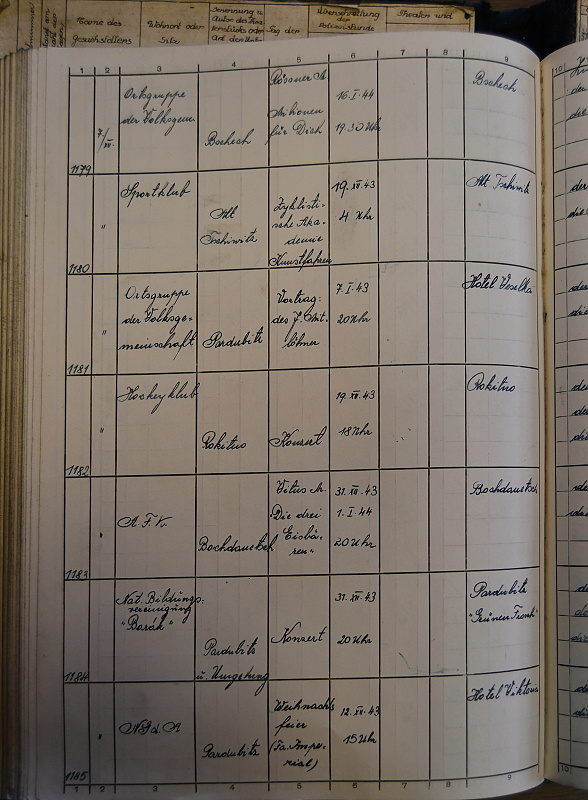 Name des
Gesuchstellers
Wohnort oder
Sitz
Benennung u.
Autor des
oder
Art der
Tag der
Überschreitung
der
Polizeistunde
Theater und
1 2 3 4 5 6 7 8 9
1179
7/XII.
Ortsgruppe
der Volksgem.
Bschech
Rössner A.
Millionen
für Dich
16.I.44
19.30 Uhr
Bschech
1180
"
Sportklub
Alt
Tschiwitz
Zyklisti-
sche Aka-
demie
Kunstfahren
19.XII.43
4 Uhr
Alt Tschiwitz
1181
"
Ortsgruppe
der Volksge-
meinschaft
Pardubitz
Vortrag:
des J. Mit-
löhner
7.I.43
20 Uhr
Hotel Veselka
1182
"
Hockeyklub
Rokitno
Konzert
19.XII.43
18 Uhr
Rokitno
1183
"
A.F.K.
Bochdanetsch
Vitus M.
"Die drei
Eisbä-
ren"
31.XII.43
1.I.44
20 Uhr
Bochdanetsch
1184
Nat. Bildungs-
vereinigung
"Barák"
Pardubitz
u. Umgebung
Konzert
31.XII.43
20 Uhr
Pardubitz
"Grüner Frosch"
1185
"
NSdA
Pardubitz
Weihnachts
feier
(Fa. Impe-
rial)
12.XII.43
15 Uhr
Hotel Viktoria
1 2 3 4 5 6 7 8 9
10
10